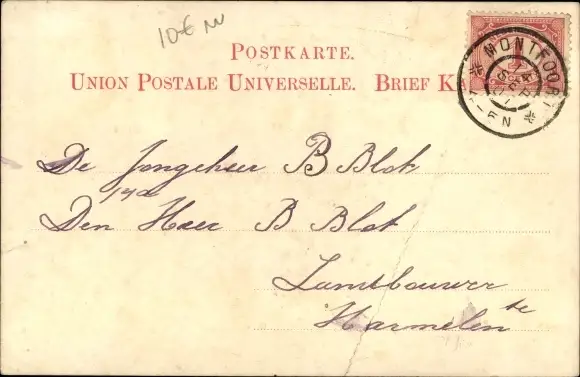 10€
POSTKARTE.
UNION POSTALE UNIVERSELLE. BRIEF K
MONTFOORT
De Jongeheer B Blok
Den Heer B Blok
Landbouwer
te
Harmelen